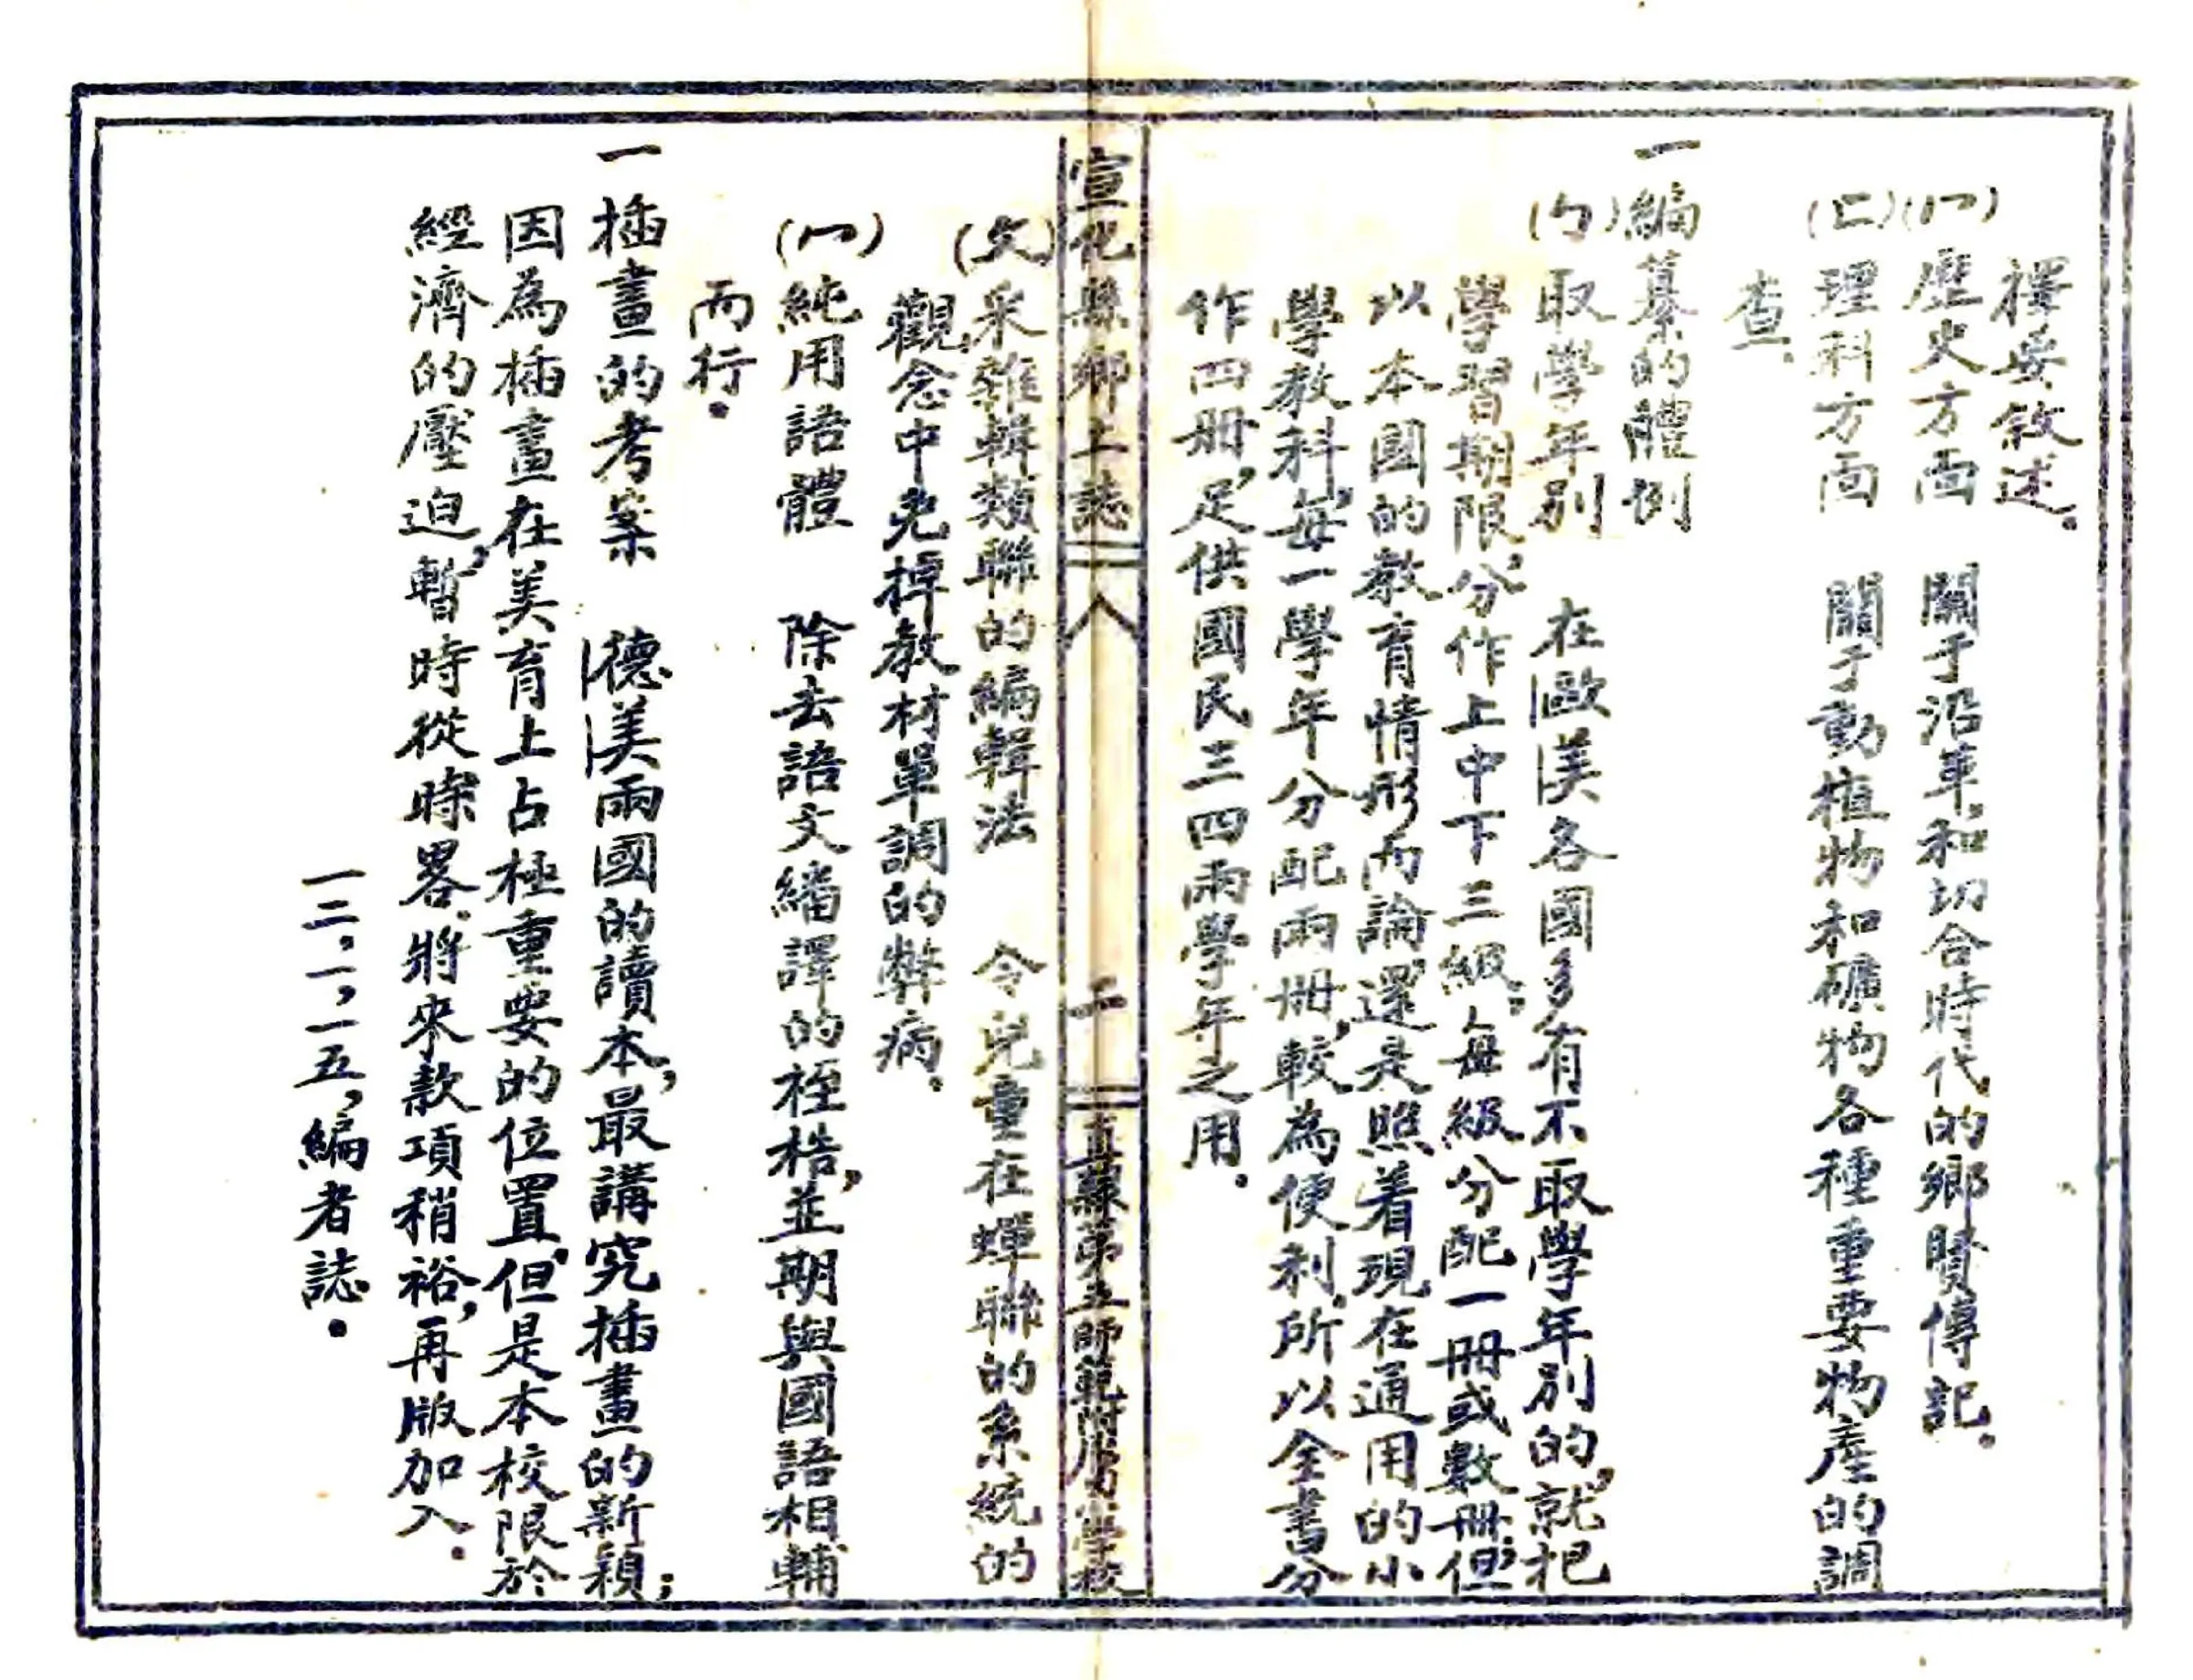 擇要敘述.
(ㄇ)歷史方面 關于沿革,和切合時代的鄉賢傳記.
(ㄈ)理科方面 關于動植物和礦物各種重要物產的調
查.
一編纂的體例
(ㄅ)取學年別 在歐美各國多有不取學年別的,就把
學習期限,分作上中下三級;每級分配一冊或數冊,但
以本國的教育情形而論,還是照着現在通用的小
學教科,每一學年分配兩冊,較為便利.所以全書分
作四冊,足供國民三四兩學年之用.
宣化縣鄉土誌 八 直隸第五師範附屬小學校
(ㄆ)采雜輯類聯的編輯法 令兒童在蟬聯的系統的
觀念中免掉教材單調的弊病.
(ㄇ)純用語體 除去語文繙譯的桎梏,並期與國語相輔
而行.
一插畫的考案 德美兩國的讀本,最講究插畫的新穎;
因為插畫在美育上占極重要的位置,但是本校限於
經濟的壓迫,暫時從畧.將來款項稍裕,再版加入.
一二.一,一五,編者誌.